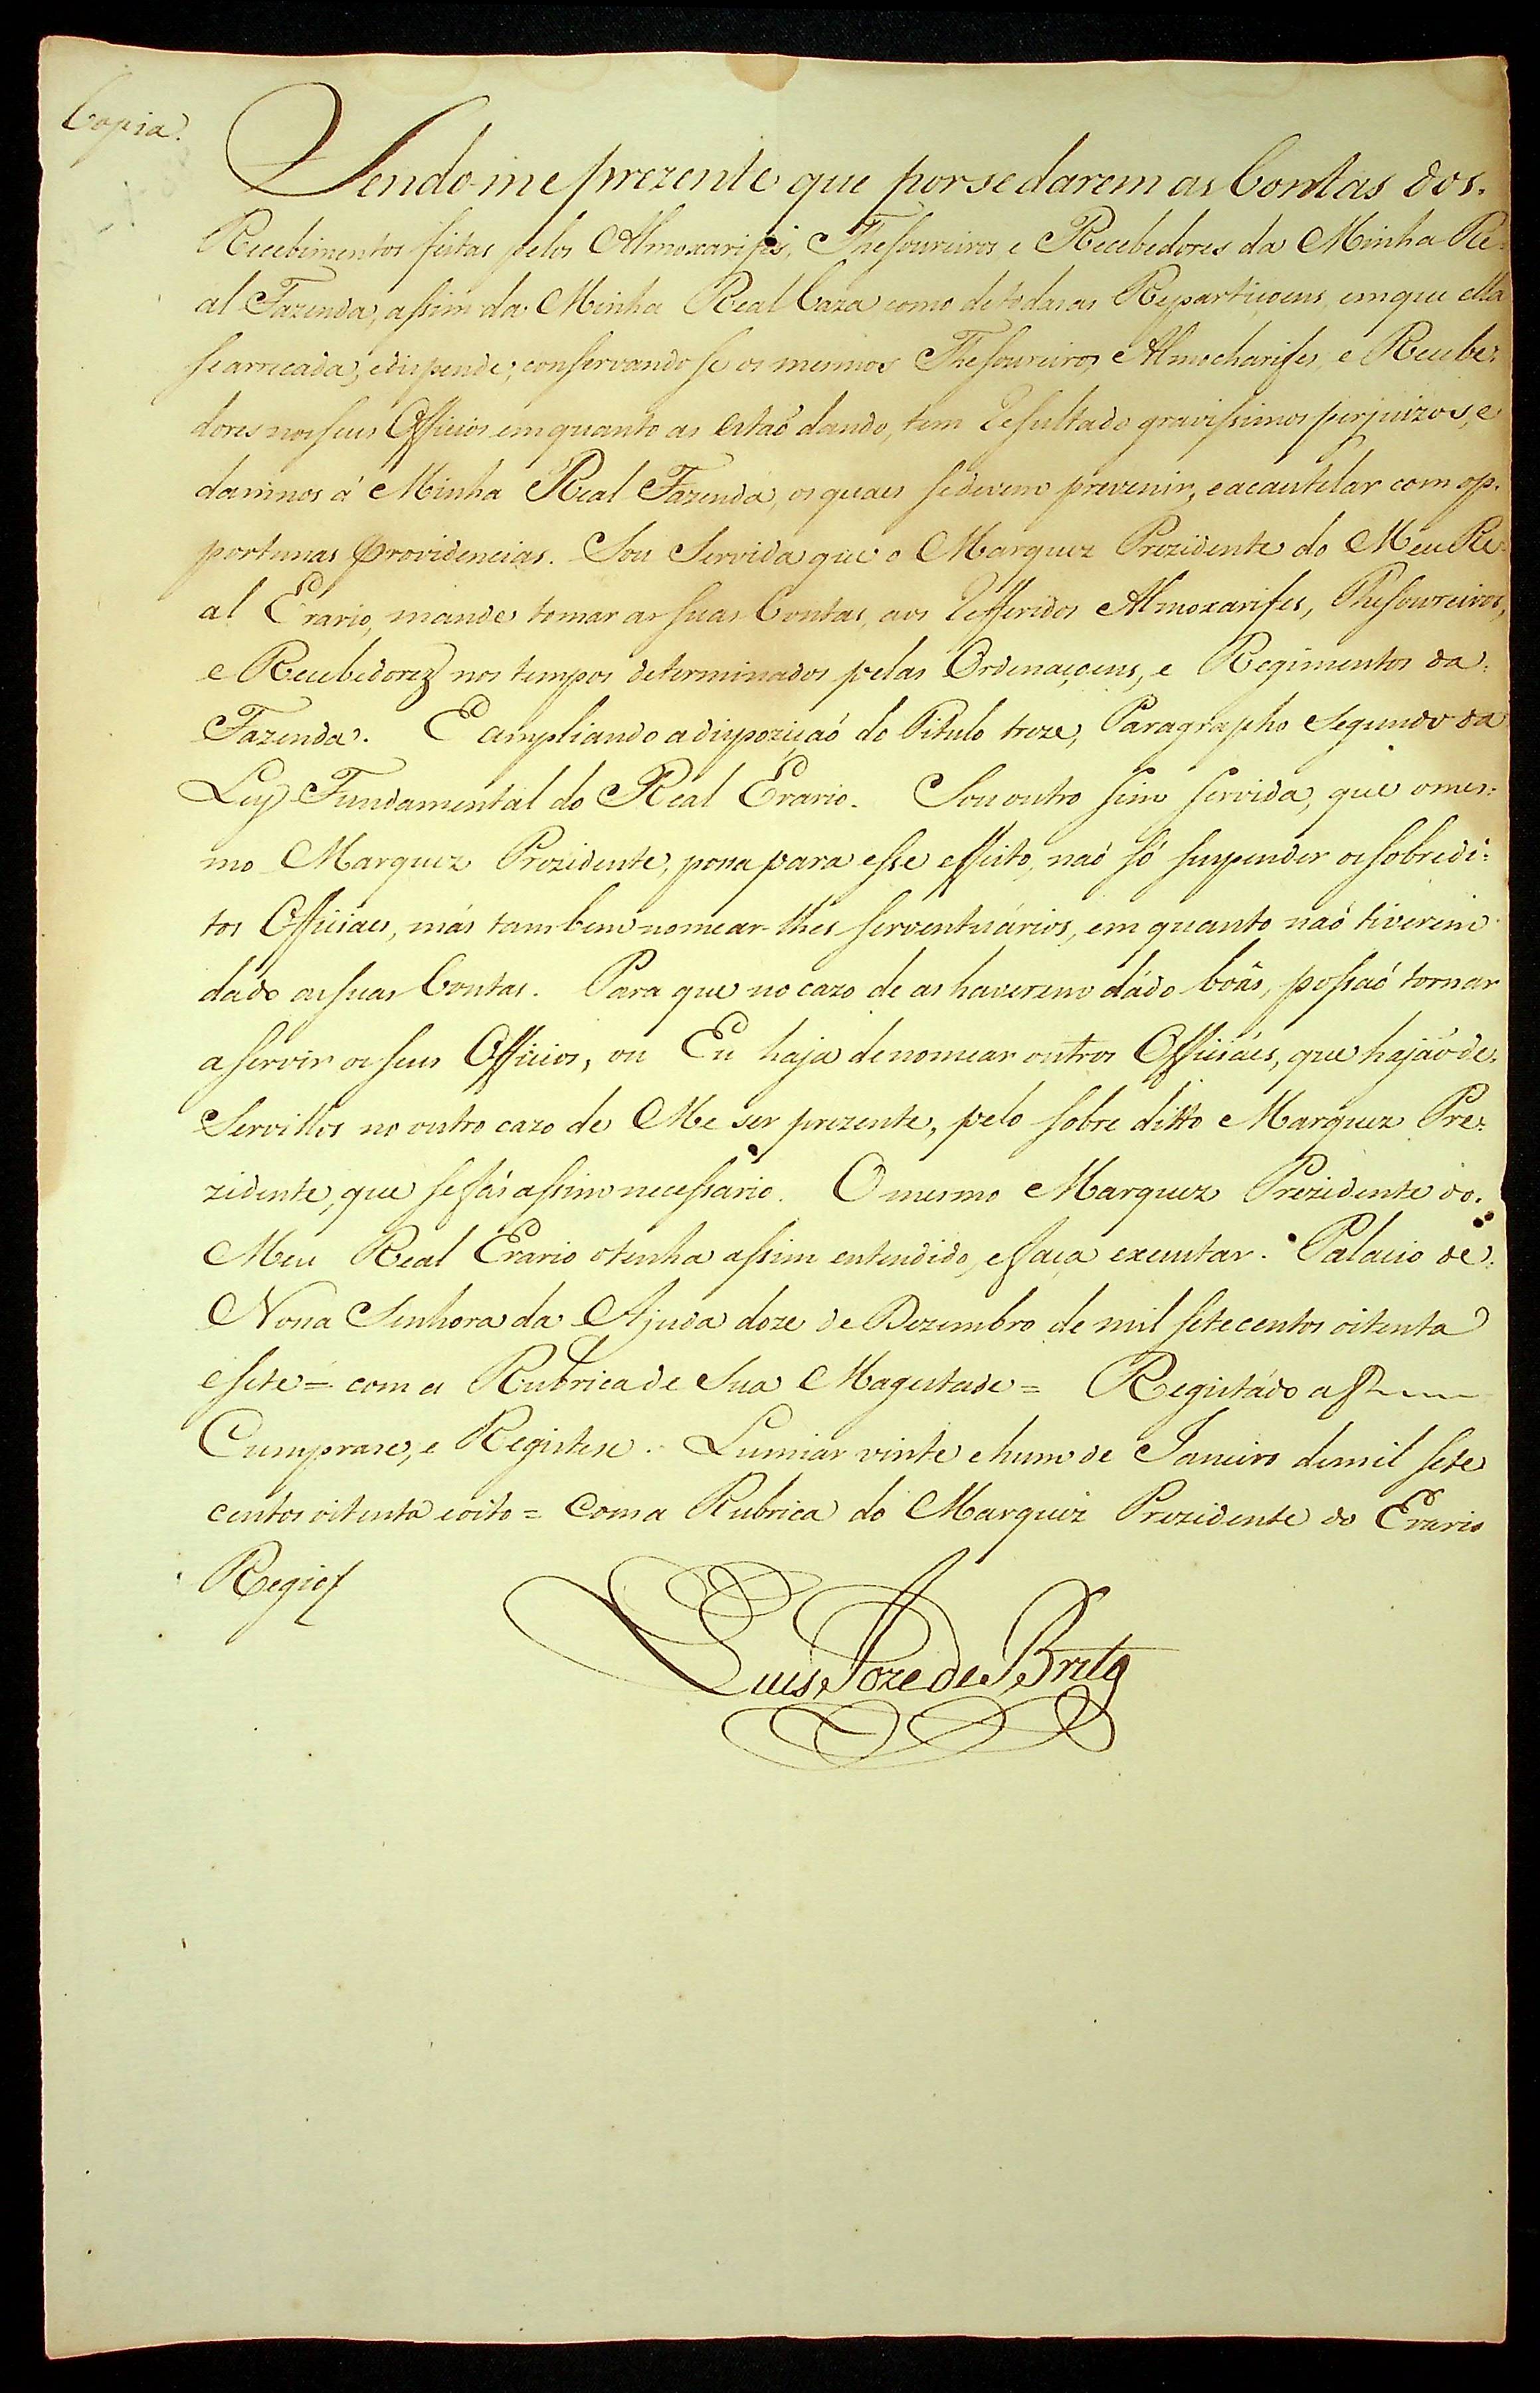 Copia.
Sendo-me prezente que por se darem as Contas dos
Recebimentos feitas pelos Almoxarifes, Thesoureiros, e Recebedores da Minha Re-
al Fazenda, assim da Minha Real Caza como de todas as Repartiçoens, em que ella
se arrecada, e dispende; conservando se os mesmos Thesoureiros, e Almocharifes, e Recebe-
dores nos seus Officios em quanto as estaõ dando, tem resultado gravissimos perjuizos, e
damnos á Minha Real Fazenda, os quaes se devem prevenir, e acautelar com op-
portunas Providencias. Sou Servida que o Marquez Prezidente do Meu Re-
al Erario, mande tomar as suas Contas, aos refferidos Almoxarifes, Thesoureiros,
e Recebedorez nos tempos determinados pelas Ordenaçoens, e Regimentos da
Fazenda. E ampliando a dispoziçaõ do Titulo treze, Paragrapho Segundo da
Ley Fundamental do Real Erario. Sou outro sim servida, que o mes-
mo Marquez Prezidente, possa para esse effeito, naõ só suspender os sobredi-
tos Officiaes, más tambem nomear-lhes serventuários, em quanto naõ tiverem
dado as suas Contas. Para que no cazo de as haverem dádo boãs, possaõ tornar
a servir os seus Officios, ou Eu haja de nomear outros Officiáes, que hajaõ de
Servillos no outro cazo de Me ser prezente, pelo sobre ditto Marquez Pre-
zidente, que se fás assim necessario. O mesmo Marquez Prezidente do
Meu Real Erario o tenha assim entendido, e faça executar. Palacio de
Nossa Senhora da Ajuda doze de Dezembro de mil sete centos oitenta
e sete = com a Rubrica de Sua Magestade = Registádo a f
Cumprase, e Registese. Lumiar vinte e hum de Janeiro de mil sete
centos oitenta e oito = Com a Rubrica do Marquez Prezidente do Erario
Regio
Luis Joze de Brito